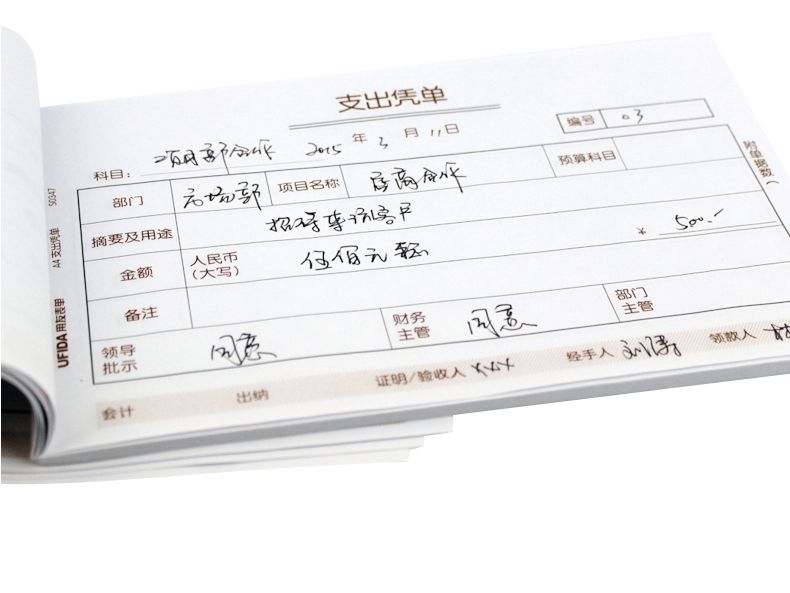 支出凭单
编号 03
科目： 项目部合作 2015 年 3 月 11 日
附单据数（
部门 市场部 项目名称 店商合作 预算科目
摘要及用途 招待来访客户
金额 人民币（大写） 伍佰元整 ¥ 500.-
备注
领导批示 同意 财务主管 同意 部门主管
会计 出纳 证明/验收人 XXX 经手人 领款人
UFIDA 用友表单 A4 支出凭单 S0347